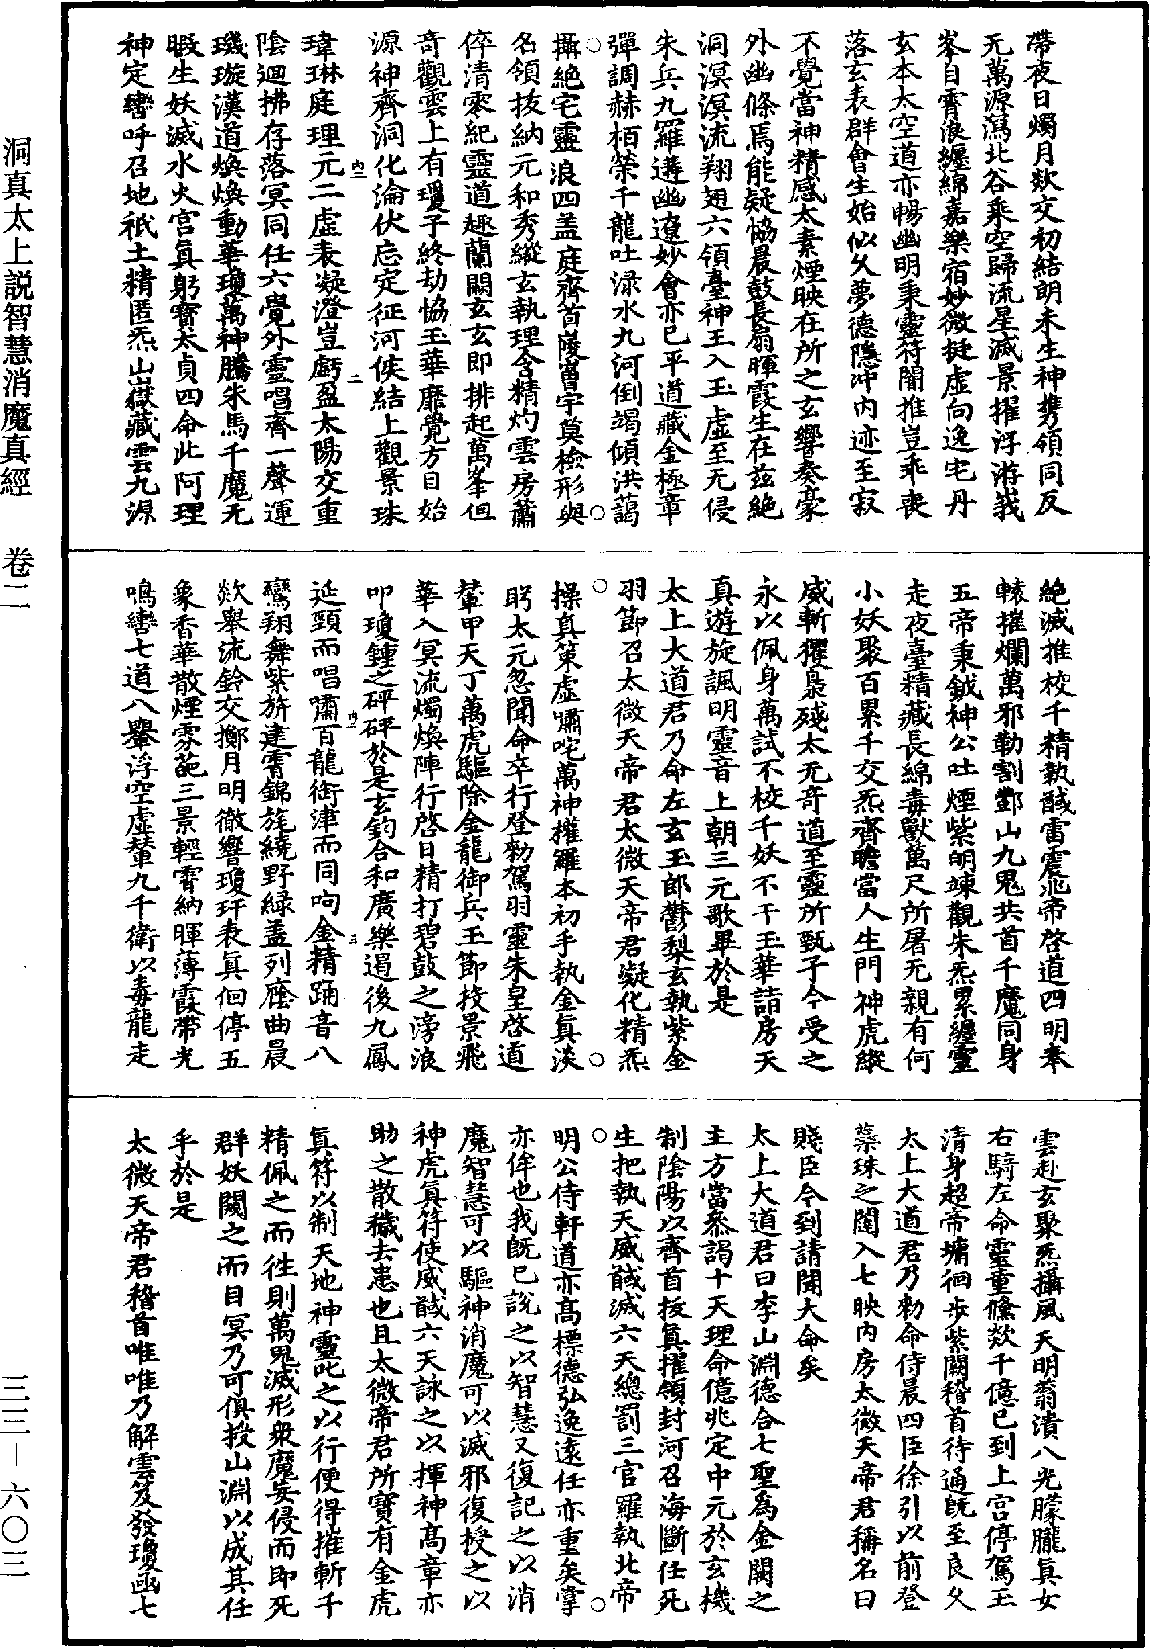 洞真太上説智慧消魔真經 卷二 三三—六〇三
帶夜日燭月歘交初結朗未生神携領同反
无萬源瀉北谷乘空歸流星滅景擢浮游峩
峯自霄浪纏綿嘉樂宿妙微挺虛向逸宅丹
玄本太空道亦暢幽明秉靈符闇推豈乖喪
落玄表群會生始似久夢德隱冲内迹至寂
不覺當神精感太素煙映在所之玄響奏豪
外幽條焉能疑恊晨鼓長扇暉霞生在兹絶
洞溟溟流翔翅六領臺神王入玉虛至无侵
朱兵九羅遘幽遼妙會亦已平道藏金極章
彈調赫栢榮千龍吐渌水九河倒竭傾洪藹
攝絶宅靈浪四盖庭齊首陵甯宇莫檢形與
名領拔納元和秀縱玄執理含精灼雲房蕭
倅清零紀靈道趣蘭闕玄玄即排起萬峯徊
奇觀雲上有瓊子終劫恊玉華靡覺方目始
源神齊洞化淪伏忘定征河俟結上觀景珠
瑋琳庭理元二虛表凝澄豈虧盈太陽交重
陰迴拂存落冥同任六覺外靈唱齊一聲運
璣璇漢道煥煥動華瓊萬神騰朱馬千魔无
暇生妖滅水火宫真躬寳太貞四命此阿理
神定轡呼召地祇土精匿炁山嶽藏雲九源
絶滅推校千精執馘雷震逃帝啓道四明奉
轅摧爛萬邪勒割酆山九鬼共首千魔同身
五帝秉鉞神公吐煙紫朙竦觀朱炁累纏靈
走夜臺精藏長綿毒獸萬尺所屠无親有何
小妖聚百累千交炁齊瞻當人生門神虎縱
威斬攫梟殘太无奇道至靈所甄子今受之
永以佩身萬試不校千妖不干玉華詣房天
真遊旋諷明靈音上朝三元歌畢於是
太上大道君乃命左玄玉郎鬱梨玄執紫金
羽節召太微天帝君太微天帝君凝化精炁
操真策虛嘯咤萬神擢羅本初手執金真淡
眄太元忽聞命卒行登勑駕羽靈朱皇啓道
輦甲天丁萬虎驅除金龍御兵玉節投景飛
華入冥流燭煥陣行啓日精打碧鼓之滂浪
叩瓊鍾之砰砰於是玄鈞合和廣樂遏後九鳳
延頸而唱嘯百龍銜津而同呴金精踊音八
鸞翔舞紫旂建霄錦旄繞野緑盖列麾曲晨
歘舉流鈴交擲月明徹響瓊玕表真徊停五
象香華散煙雰葩三景輕霄納暉薄霞帶光
鳴轡七道八轝浮空虛輦九千衛以毒龍走
雲赴玄聚炁攝風天明蓊漬八光朦朧真女
右騎左命靈童儵歘千億已到上宫停駕玉
清身超帝墉徊步紫闕稽首待通旣至良久
太上大道君乃勑命侍晨四臣徐引以前登
蘂珠之闥入七映内房太微天帝君稱名曰
賤臣今到請聞大命矣
太上大道君曰李山淵德合七聖為金闕之
主方當叅謁十天理命億兆定中元於玄機
制陰陽以齊首拔真擢領封河召海斷任死
生把執天威馘滅六天總罰三官羅執北帝
明公侍軒道亦高標德弘逸遠任亦重矣掌
亦侔也我旣已說之以智慧又復記之以消
魔智慧可以驅神消魔可以滅邪復授之以
神虎真符使威馘六天詠之以揮神高章亦
助之散穢去患也且太微帝君所寶有金虎
真符以制天地神靈叱之以行便得摧斬千
精佩之而往則萬鬼滅形衆魔妄侵而即死
群妖闞之而目冥乃可俱投山淵以成其任
乎於是
太微天帝君稽首唯唯乃解雲笈發瓊函七